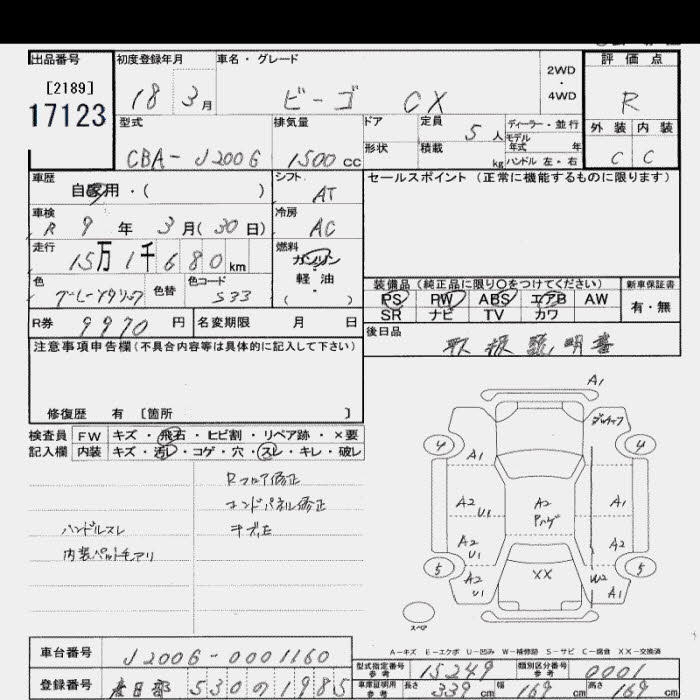 出品番号 初度登録年月 車名・グレード 2WD・4WD 評価点
[2189]
17123
18 3月 ビーゴ CX R
型式 排気量 ドア 定員 5人 ディーラー・並行 外装 内装
モデル年式 年
CBA-J200G 1500cc 形状 積載 kg ハンドル 左・右 C C
車歴 自家用・( ) シフト AT セールスポイント (正常に機能するものに限ります)
車検 R 9年 3月(30日) 冷房 AC
走行 15万1千680km 燃料 ガソリン
軽・油
( )
色 色替 色コード S33
装備品 (純正品に限り○をつけてください) 新車保証書
PS PW ABS エアB AW 有・無
SR ナビ TV カワ
R券 9970円 名変期限 月 日 後日品
取扱説明書
注意事項申告欄(不具合内容等は具体的に記入して下さい)
修復歴 有 [箇所 ]
検査員 FW キズ・飛石・ヒビ割・リペア跡・×要
記入欄 内装 キズ・汚レ・コゲ・穴・スレ・キレ・破レ
Rフロア修正
エンドパネル修正
ハンドルスレ
内装ペットモアリ
A1
4 A1 4
A2 U1 A2 A1
A2 U1 A2
5 A2 U1 XX W2 A1 5
スペア
A-キズ E-エクボ U-凹み W-補修跡 S-サビ C-腐食 XX-交換済
車台番号 J200G-0001160
型式指定番号 参考 15249 類別区分番号 参考 0001
登録番号 春日部 530 の 1985
車庫証明用 参考 長さ 339cm 幅 169cm 高さ 169cm